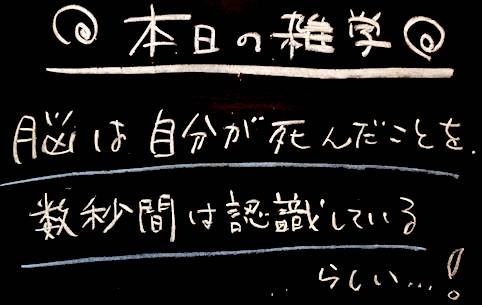 本日の雑学
脳は自分が死んだことを、
数秒間は認識している
らしい…!